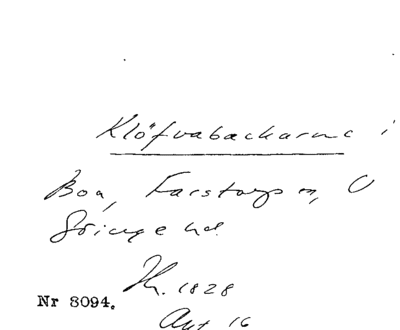 Klöfvabackarne i
Boa, Farstorps sn, V
Göinge hd.
Th. 1828
Nr 8094.
Akt 16